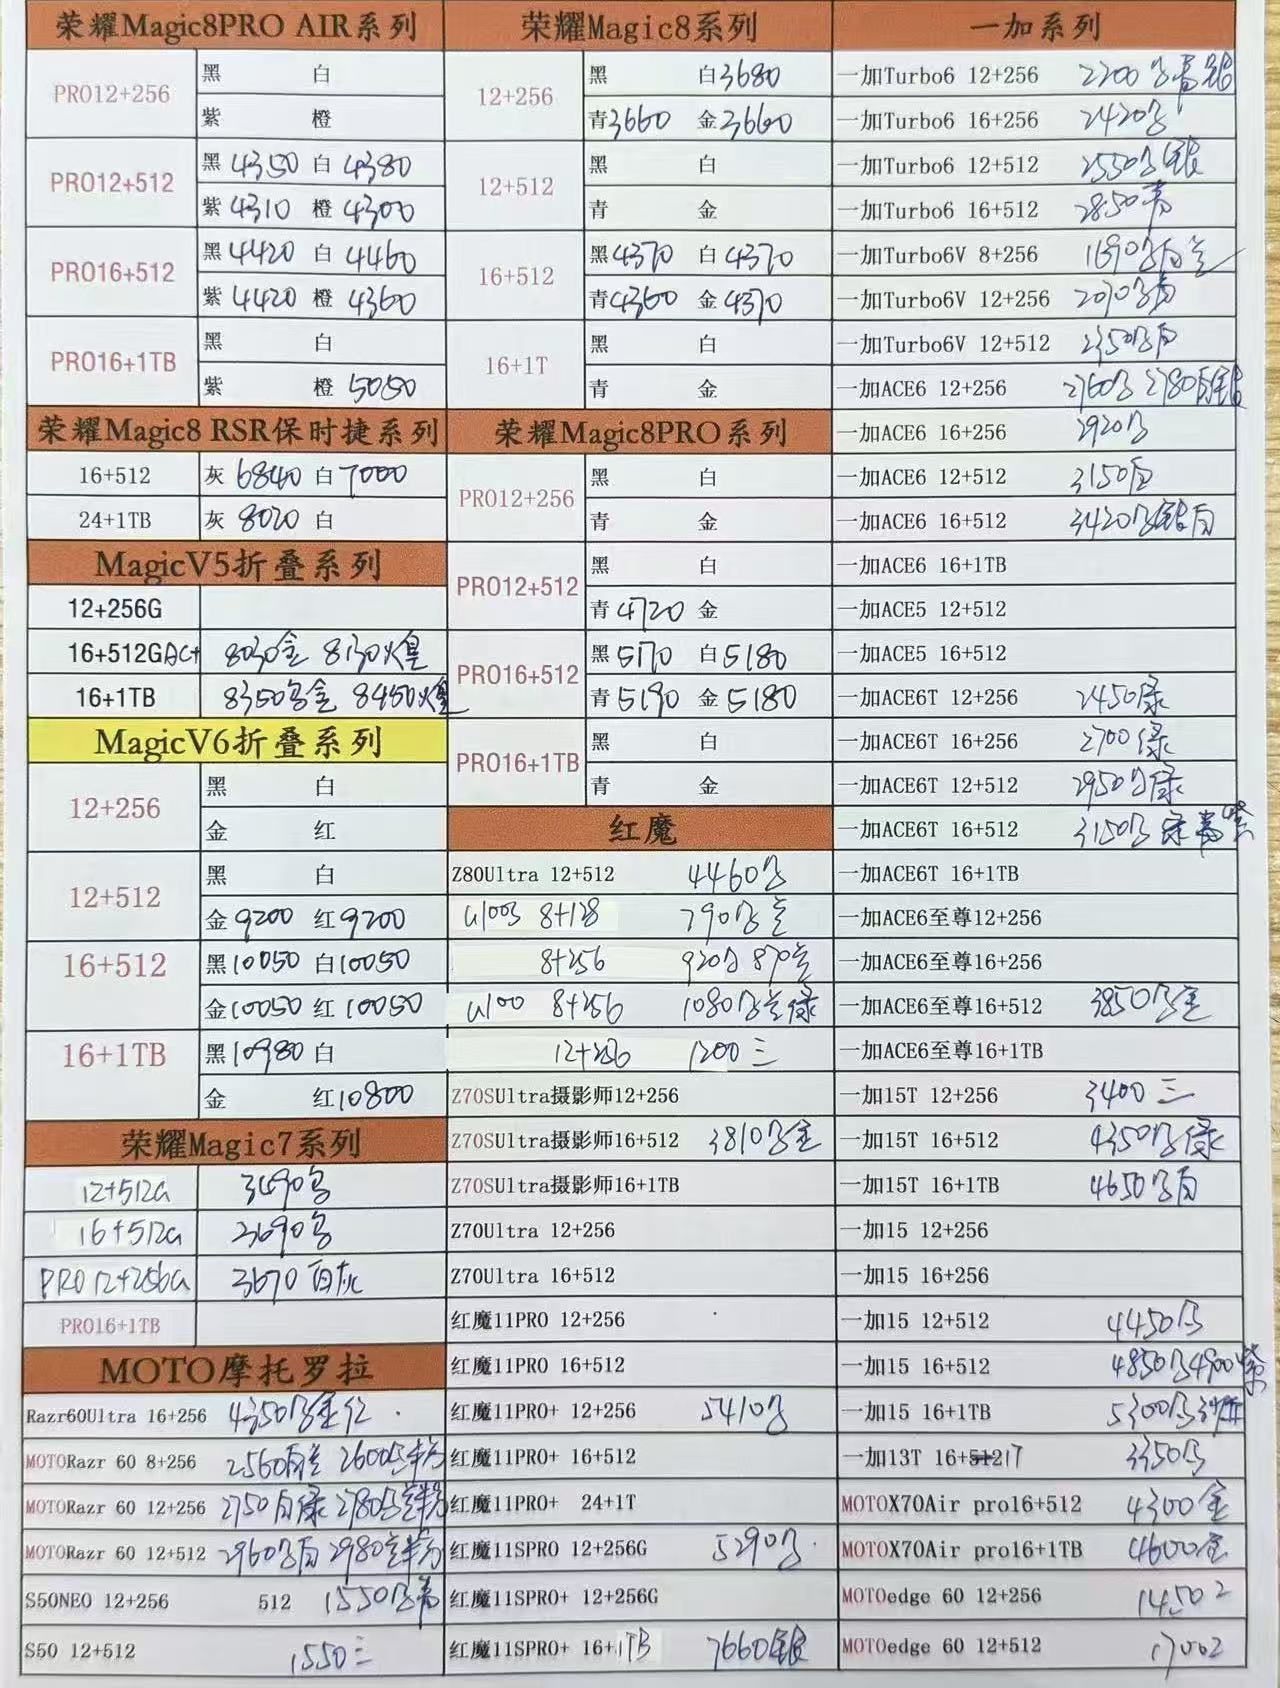 荣耀Magic8PRO AIR系列
PRO12+256
黑 白
紫 橙
PRO12+512
黑 4350 白 4380
紫 4310 橙 4300
PRO16+512
黑 4420 白 4460
紫 4420 橙 4360
PRO16+1TB
黑 白
紫 橙 5050
荣耀Magic8 RSR保时捷系列
16+512 灰 6840 白 7000
24+1TB 灰 8020 白
MagicV5折叠系列
12+256G
16+512G 8030金
16+1TB
MagicV6折叠系列
12+256
黑 白
金 红
12+512
黑 白
金 9200 红 9200
16+512
黑 10050 白 10050
金 10050 红 10050
16+1TB
黑 10980 白
金 红 10800
荣耀Magic7系列
12+512G
16+512G 3690
PRO 12+256G 3670 白灰
PRO16+1TB
MOTO摩托罗拉
Razr60Ultra 16+256
MOTORazr 60 8+256 2560
MOTORazr 60 12+256 2750白绿
MOTORazr 60 12+512
S50NEO 12+256 512 1550
S50 12+512 1550三
荣耀Magic8系列
12+256
黑 白 3680
青 3660 金 3660
12+512
黑 白
青 金
16+512
黑 4370 白 4370
青 4360 金 4370
16+1T
黑 白
青 金
荣耀Magic8PRO系列
PRO12+256
黑 白
青 金
PRO12+512
黑 白
青 4720 金
PRO16+512
黑 5170 白 5180
青 5190 金 5180
PRO16+1TB
黑 白
青 金
红魔
Z80Ultra 12+512 4460
8+128 790
8+256 920
8+256 1080
12+256 1200三
Z70SUltra摄影师12+256
Z70SUltra摄影师16+512 3810
Z70SUltra摄影师16+1TB
Z70Ultra 12+256
Z70Ultra 16+512
红魔11PRO 12+256
红魔11PRO 16+512
红魔11PRO+ 12+256 5410
红魔11PRO+ 16+512
红魔11PRO+ 24+1T
红魔11SPRO 12+256G 5290
红魔11SPRO+ 12+256G
红魔11SPRO+ 16+1TB 7660银
一加系列
一加Turbo6 12+256 2200
一加Turbo6 16+256 2420
一加Turbo6 12+512 2550
一加Turbo6 16+512 2850
一加Turbo6V 8+256
一加Turbo6V 12+256
一加Turbo6V 12+512
一加ACE6 12+256 2760
一加ACE6 16+256 2920
一加ACE6 12+512 3150白
一加ACE6 16+512 3420
一加ACE6 16+1TB
一加ACE5 12+512
一加ACE5 16+512
一加ACE6T 12+256 2450绿
一加ACE6T 16+256 2700绿
一加ACE6T 12+512 2950
一加ACE6T 16+512 3150
一加ACE6T 16+1TB
一加ACE6至尊12+256
一加ACE6至尊16+256
一加ACE6至尊16+512 3850
一加ACE6至尊16+1TB
一加15T 12+256 3400三
一加15T 16+512 4350
一加15T 16+1TB 4650
一加15 12+256
一加15 16+256
一加15 12+512 4450
一加15 16+512 4850
一加15 16+1TB 5300
一加13T 16+ 3350
MOTOX70Air pro16+512 4300金
MOTOX70Air pro16+1TB 4600金
MOTOedge 60 12+256 1450
MOTOedge 60 12+512 1700